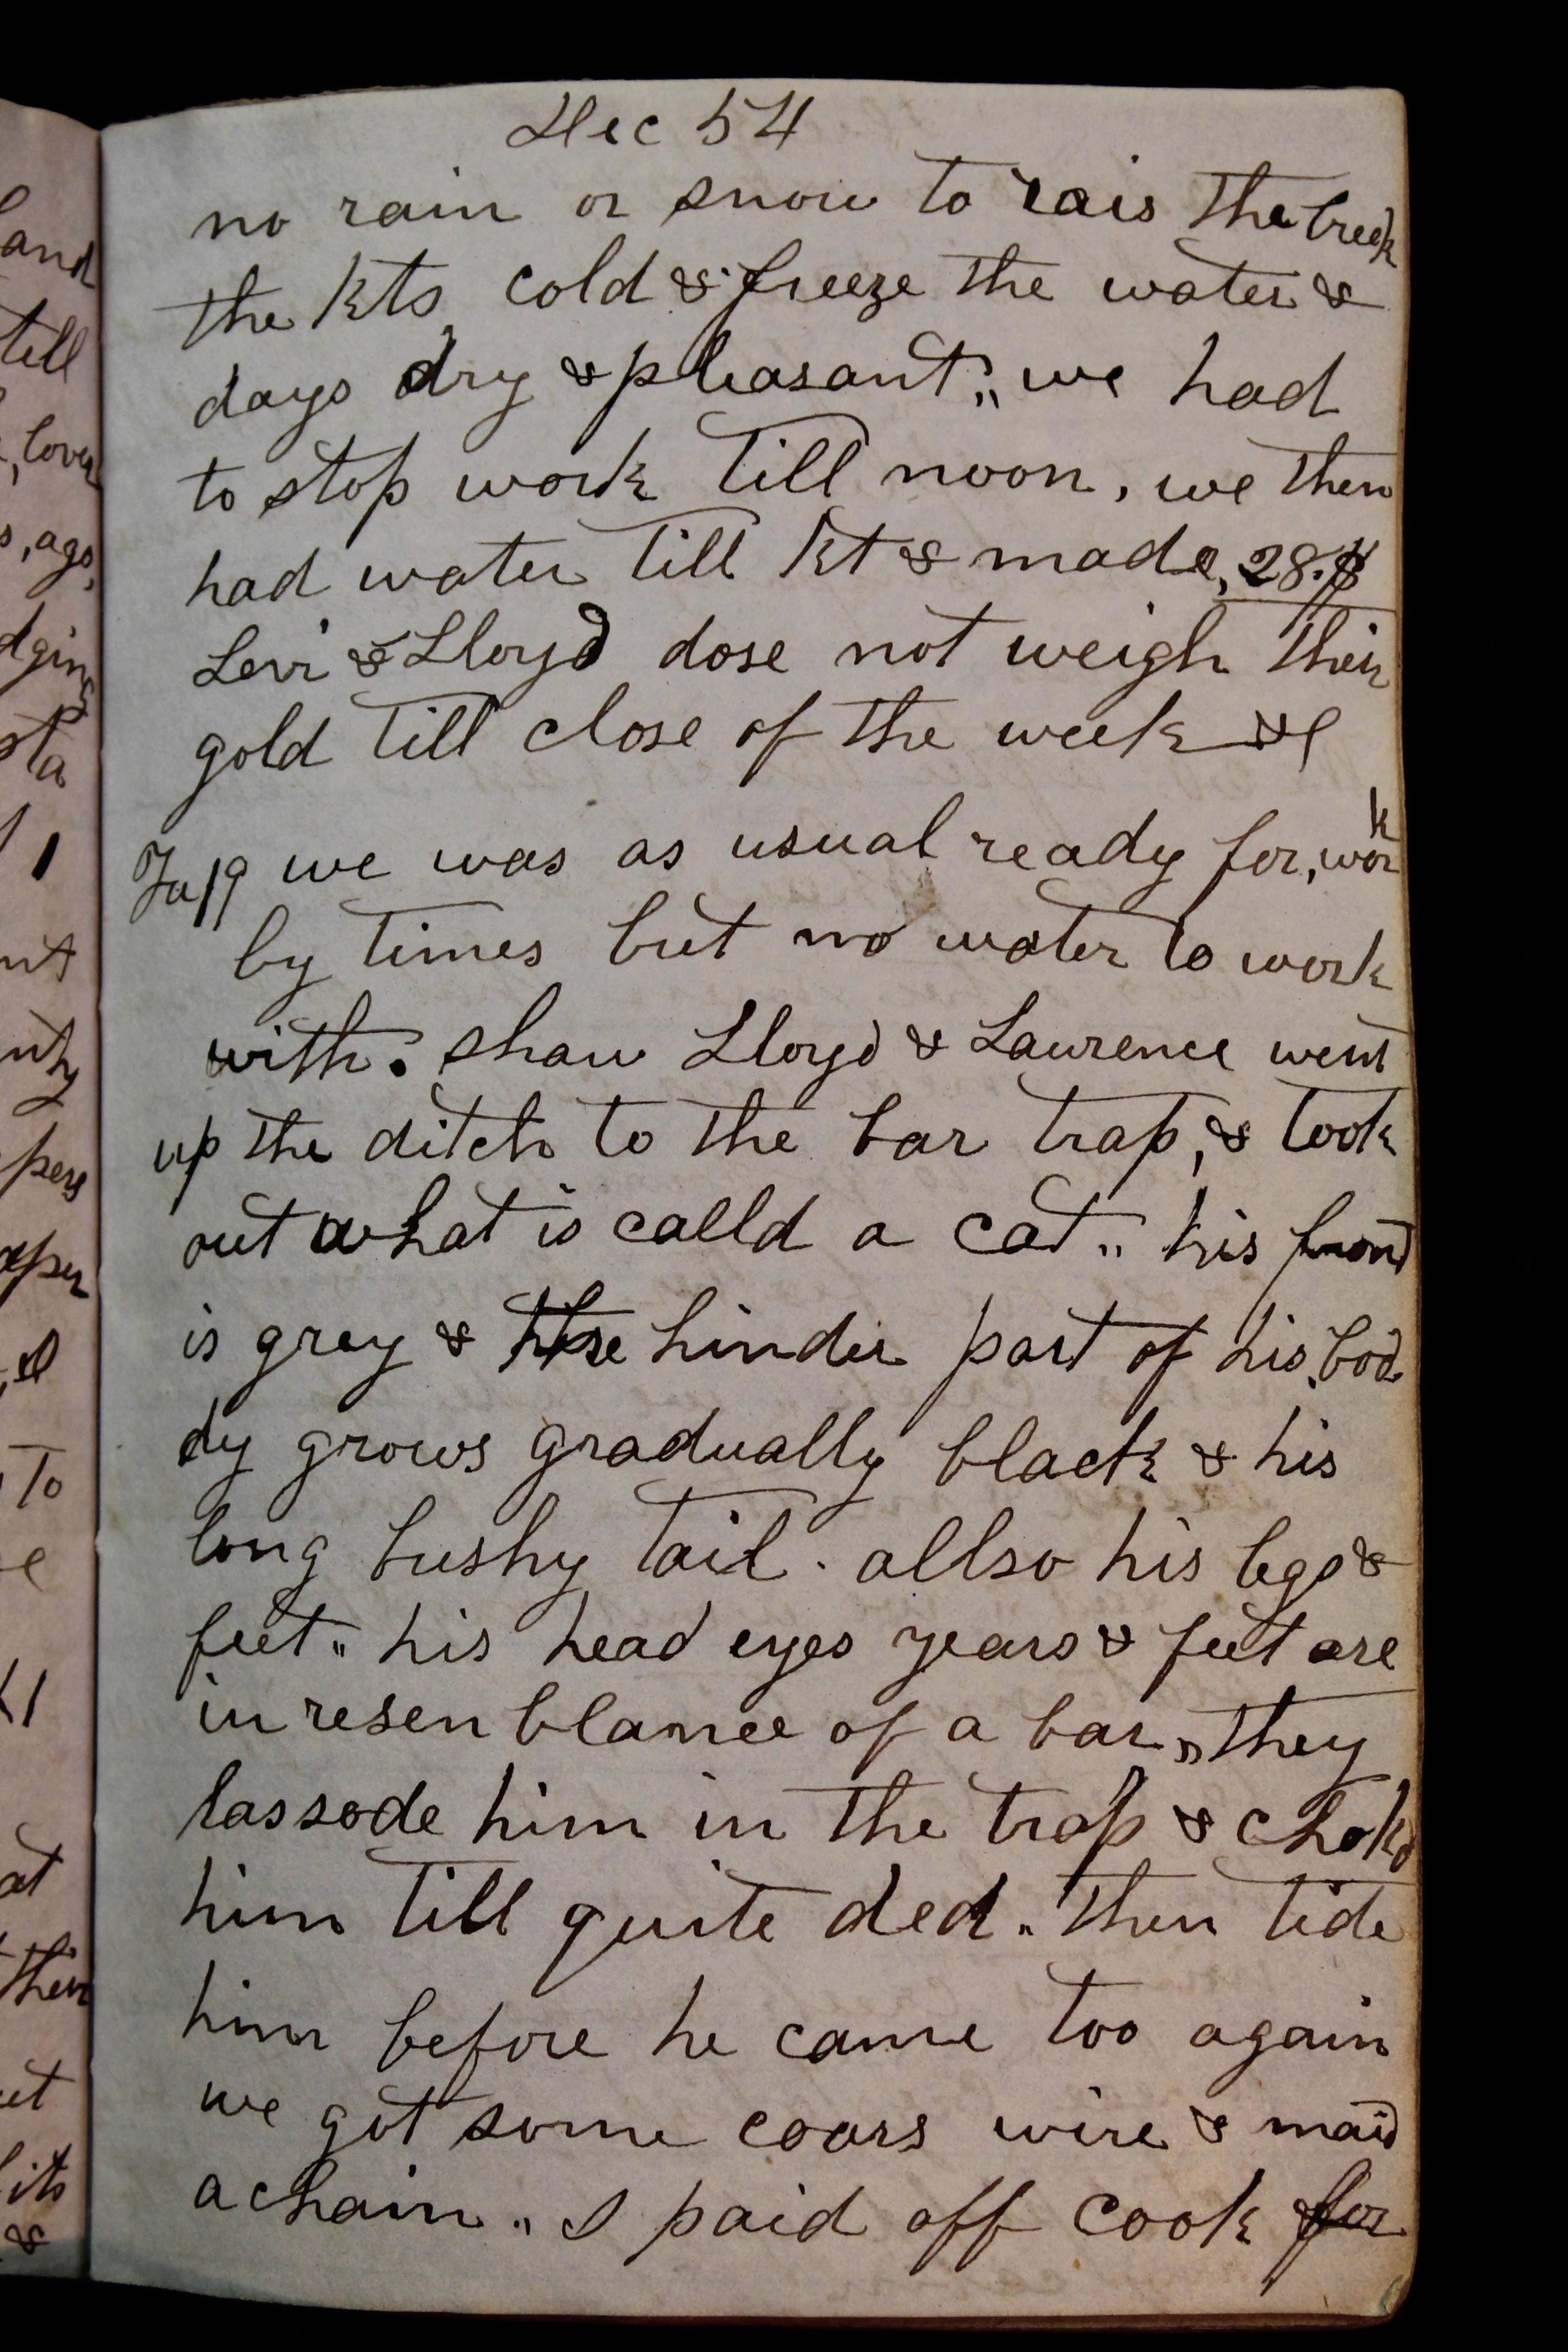 Dec 54
no rain or snow to rais the creek
the Kts cold & freeze the water &
days dry & pleasant,, we had
to stop work till noon, we then
had water till Kt & made, 28.$
Levi & Lloyd dose not weigh their
gold till close of the week
Tu 19 we was as usual ready for, work
by times but no water to work
with. Shaw Lloyd & Laurence went
up the ditch to the bar trap, & took
out what is calld a cat,, his front
is gray & the hinder part of his bod
dy grows gradually black & his
long bushy tail. allso his legs &
feet,, his head eyes years & feet are
in resenblance of a bar,, they
lassode him in the trap & chokd
him till quite ded,, then tide
him before he came too again
we got some coars wire & maid
a chain,, I paid off cook for
and
till
lover
s, ago,
sta
1
pers
To
at
then
its
&